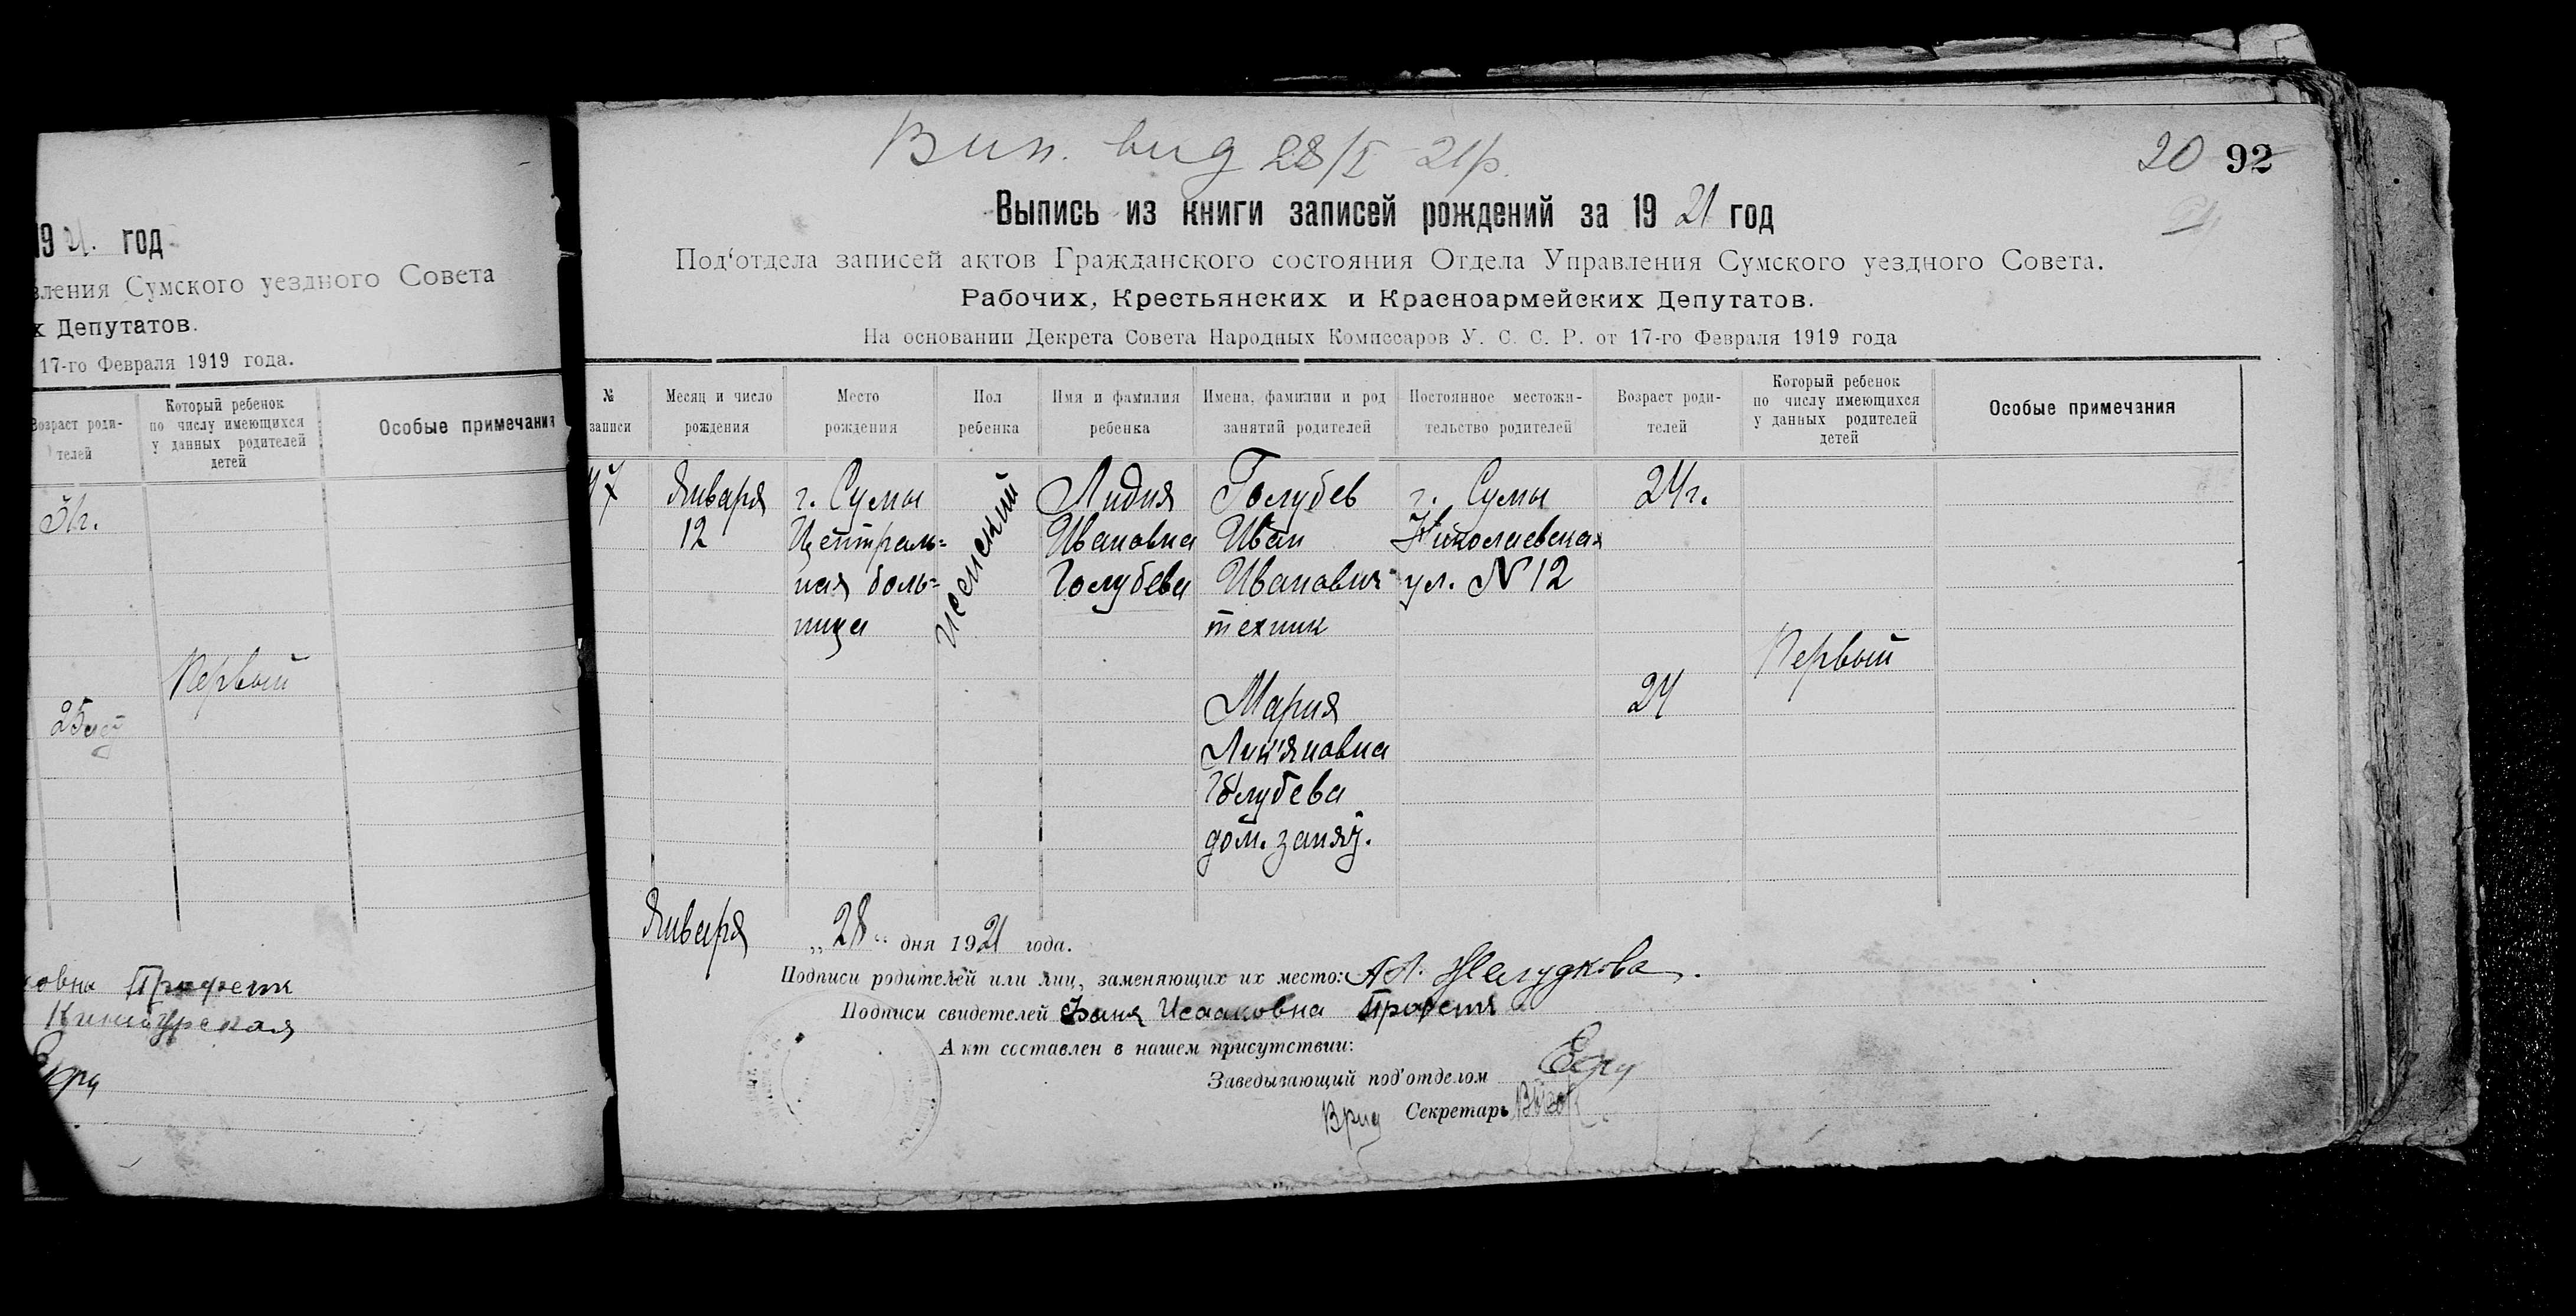 19 21. год
вления Сумского уездного Совета
х Депутатов.
17-го Февраля 1919 года.
Возраст роди-
телей
Который ребенок
по числу имеющихся
у данных родителей
детей
Особые примечания
31г.
Первый
25
овна
Вип. вид 28/I 21р.
20 92
Выпись из книги записей рождений за 19 21 год
Под'отдела записей актов Гражданского состояния Отдела Управления Сумского уездного Совета.
Рабочих, Крестьянских и Красноармейских Депутатов.
На основании Декрета Совета Народных Комиссаров У. С. С. Р. от 17-го Февраля 1919 года
№
записи
Месяц и число
рождения
Место
рождения
Пол
ребенка
Имя и фамилия
ребенка
Имена, фамилии и род
занятий родителей
Постоянное местожи-
тельство родителей
Возраст роди-
телей
Который ребенок
по числу имеющихся
у данных родителей
детей
Особые примечания
Января
12
г. Сумы
Централь=
ная боль=
ница
женский
Лидия
Ивановна
Голубева
Голубев
Иван
Иванович
техник
Мария
Голубева
дом. занят.
г. Сумы
Николаевская
ул. N 12
24г.
24
Первый
Января „28“ дня 1921 года.
Подписи родителей или лиц, заменяющих их место: А Л. Желудкова.
Подписи свидетелей Фаня Исааковна
Акт составлен в нашем присутствии:
Заведывающий под'отделом
Врид Секретарь